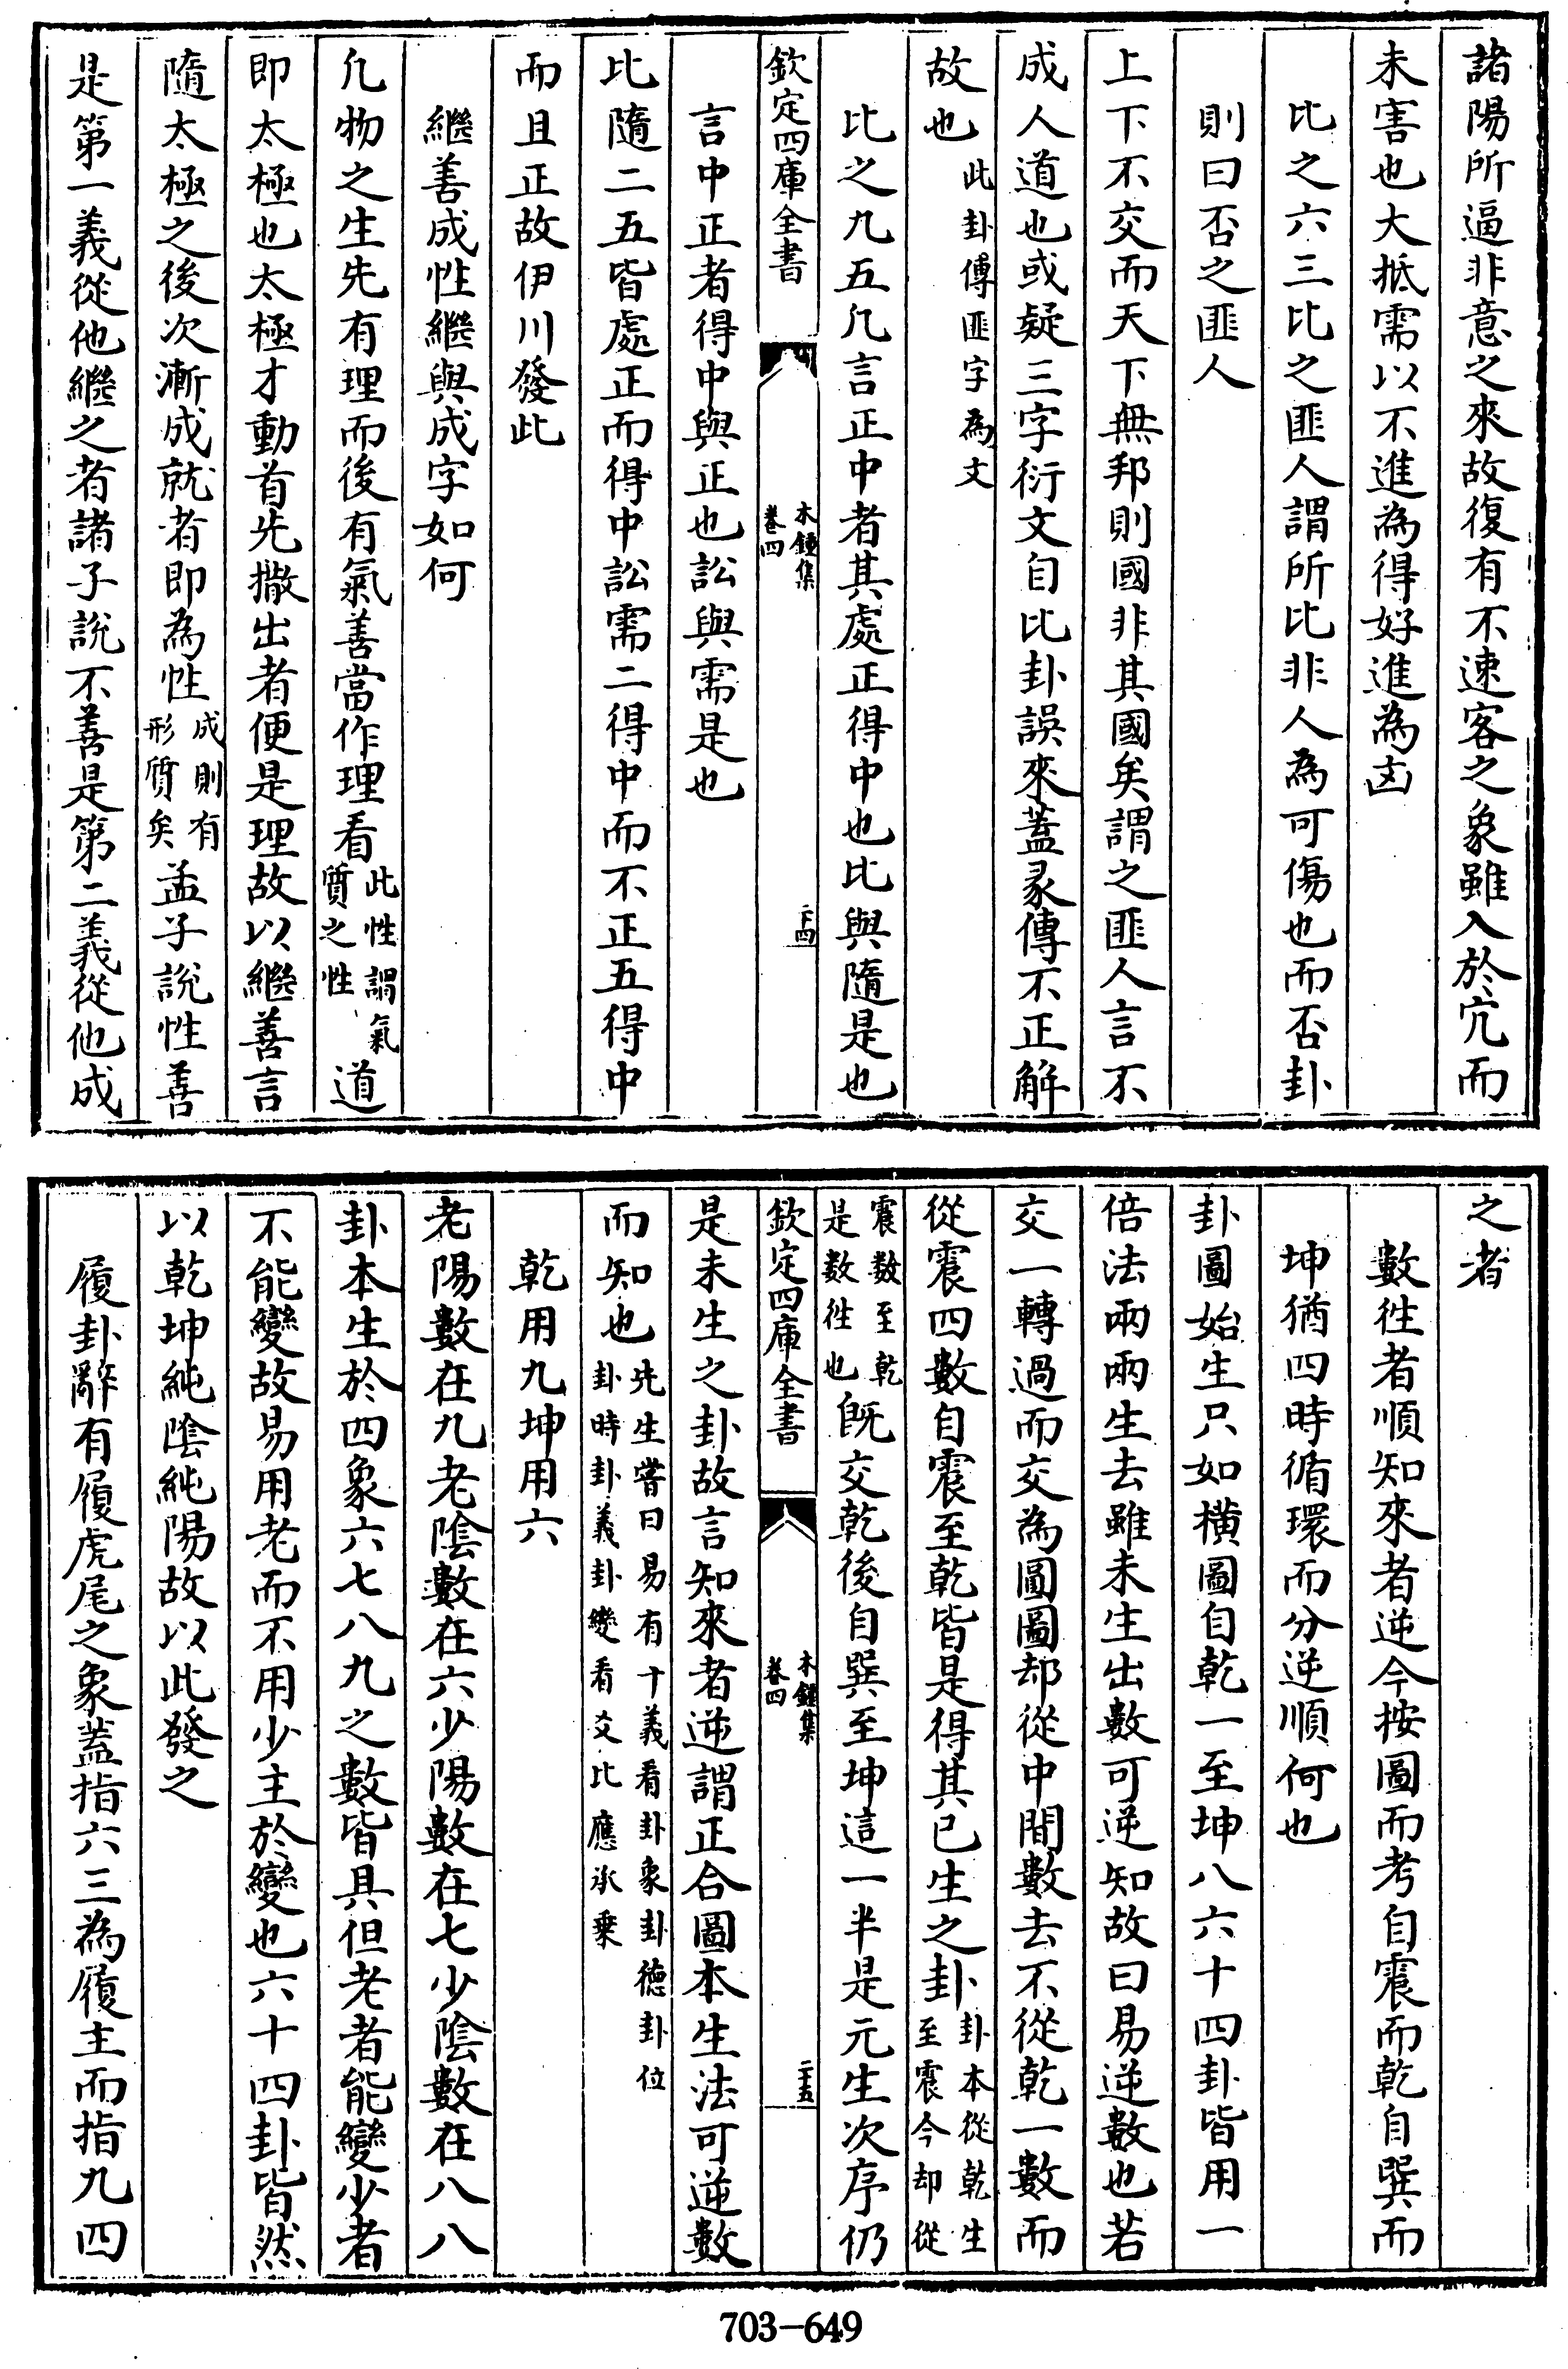 諸陽所逼非意之來故復有不速客之象雖入於穴而
未害也大抵需以不進為得好進為凶
比之六三比之匪人謂所比非人為可傷也而否卦
則曰否之匪人
上下不交而天下無邦則國非其國矣謂之匪人言不
成人道也或疑三字衍文自比卦誤來蓋彖傳不正解
故也此卦傳匪字為文
比之九五凡言正中者其處正得中也比與隨是也
欽定四庫全書
木鍾集
卷四
二十四
言中正者得中與正也訟與需是也
比隨二五皆處正而得中訟需二得中而不正五得中
而且正故伊川發此
繼善成性繼與成字如何
凡物之生先有理而後有氣善當作理看此性謂氣質之性道
即太極也太極才動首先撒出者便是理故以繼善言
隨太極之後次漸成就者即為性成則有形質矣孟子說性善
是第一義從他繼之者諸子說不善是第二義從他成
之者
數徃者順知來者逆今按圖而考自震而乾自巽而
坤猶四時循環而分逆順何也
卦圖始生只如橫圖自乾一至坤八六十四卦皆用一
倍法兩兩生去雖未生出數可逆知故曰易逆數也若
交一轉過而交為圓圖却從中間數去不從乾一數而
從震四數自震至乾皆是得其已生之卦卦本從乾生至震今却從
震数至乾是数徃也既交乾後自巽至坤這一半是元生次序仍
欽定四庫全書
木鍾集
卷四
二十五
是未生之卦故言知來者逆謂正合圖本生法可逆數
而知也先生嘗曰易有十義看卦象卦德卦位卦時卦義卦變看爻比應承乗
乾用九坤用六
老陽數在九老陰數在六少陽數在七少陰數在八八
卦本生於四象六七八九之數皆具但老者能變少者
不能變故易用老而不用少主於變也六十四卦皆然
以乾坤純陰純陽故以此發之
履卦辭有履虎尾之象蓋指六三為履主而指九四
703-649